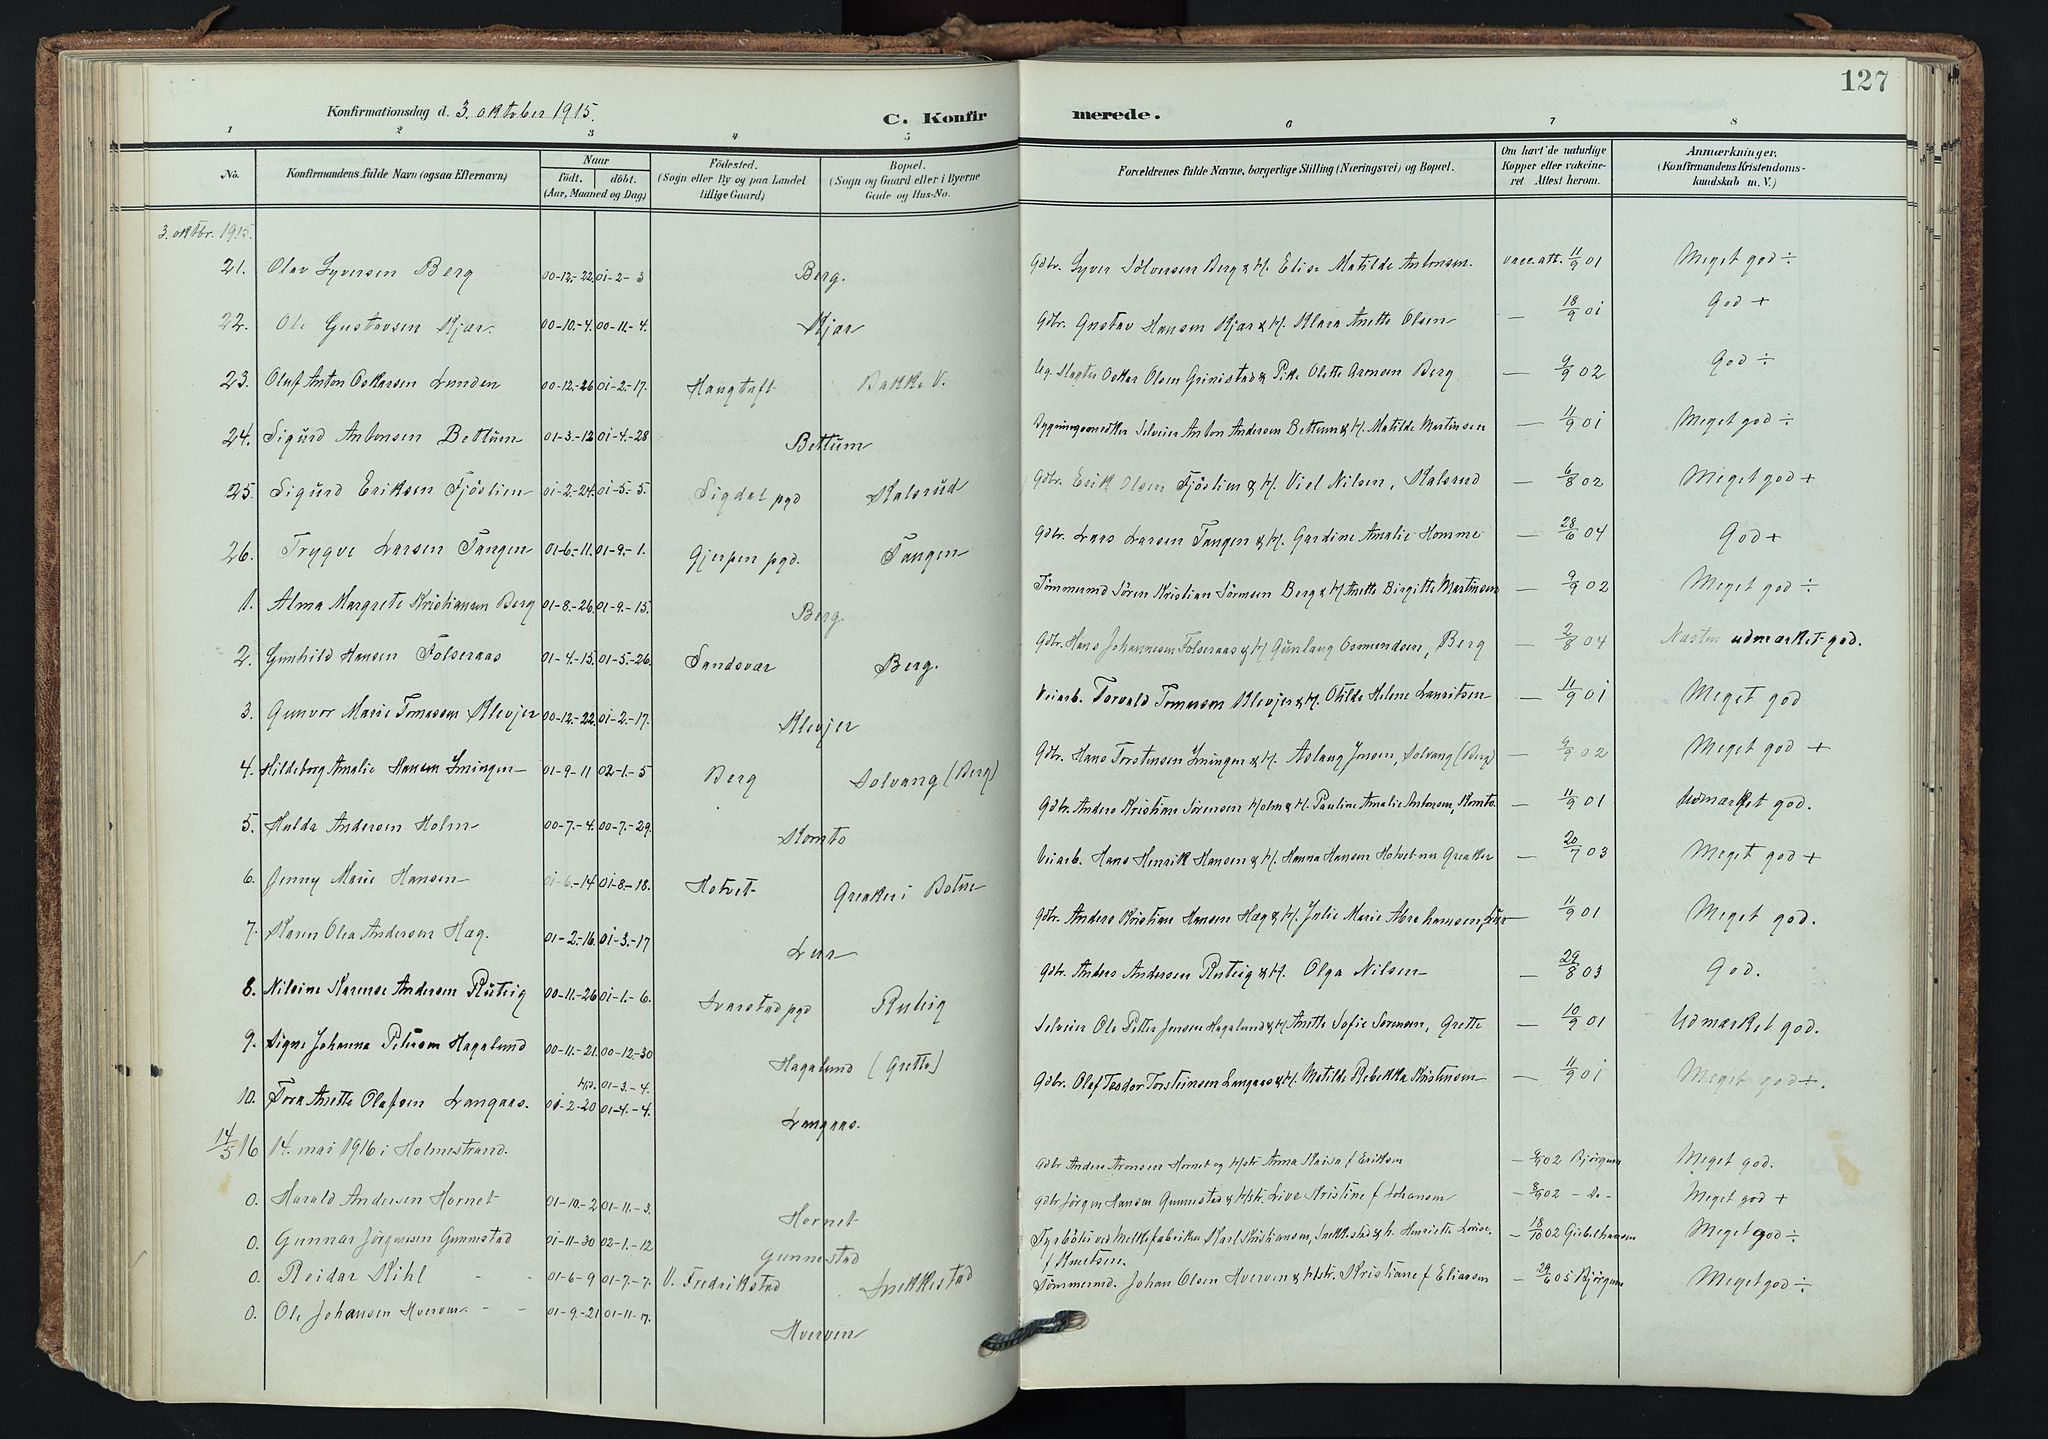 127
Konfirmationsdag d. 3. oktober 1915.
C. Konfirmerede.
1 2 3 4 5 6 7 8
No. Konfirmandens fulde Navn (ogsaa Efternavn) Naar født. døbt. (Aar, Maaned og Dag) Fødested. (Sogn eller By og paa Landet tillige Gaard) Bopæl. (Sogn og Gaard eller i Byerne Gade og Hus-No. Forældrenes fulde Navne, borgerlige Stilling (Næringsvei) og Bopæl. Om havt de naturlige Kopper eller vaccineret Attest herom. Anmærkninger. (Konfirmandens Kristendomskundskab m. V.)
3. oktbr. 1915.
21. Olav Syversen Berg 00-12-22 01-2-3 Berg. Gdbr. Syver Sölversen Berg & H. Elise Matilde Antonsen. vacc. att. 11/9 01 Meget god ÷
22. Ole Gustavsen Kjær. 00-10-4. 00-11-4. Kjær Gdbr. Gustav Hansen Kjær & H. Klara Anette Olsen — 18/9 01 God +
23. Oluf Anton Oskarsen Lunden 00-12-26 01-2-17. Haugtuft Bakke V. Ug. Slagter Oskar Olsen Grinistad & Pike Olette Armsen Berg — 9/9 02 God ÷
24. Sigurd Antonsen Bettum 01-3-12 01-4-28 Bettum Selveier Anton Andersen Bettum & H. Matilde Martinsen — 11/9 01 Meget god ÷
25. Sigurd Eriksen Fjöslien 01-2-24. 01-5-5. Sigdal pgd Kalsrud Gdbr. Erik Olsen Fjöslien & H. Viel Nilsen, Kalsrud — 6/8 02 Meget god +
26. Trygve Larsen Tangen 01-6-11. 01-9-1. Gjerpen pgd. Tangen Gdbr. Lars Larsen Tangen & H. Gardine Amalie Homme — 28/6 04 God +
1. Alma Margrete Kristiansen Berg 01-8-26. 01-9-15. Berg. Tömmermd Sören Kristian Sörensen Berg & H. Anette Birgitte Martinsen — 9/9 02 Meget god ÷
2. Gunhild Hansen Folseraas 01-4-15. 01-5-26. Sandsvær Berg. Gdbr. Hans Johannesen Folseraas & H. Gunlaug Osmundsen, Berg — 2/8 04 Næsten udmærket god.
3. Gunvor Marie Tomassen Klevjer 00-12-22. 01-2-17. Klevjer Veiarb. Torvald Tomassen Klevjer & H. Otilde Helene Lauritsen — 11/9 01 Meget god
4. Hildeborg Amalie Hansen Smingen 01-9-11 02-1-5 Berg Solvang (Berg) Gdbr. Hans Torstensen Smingen & H. Aslaug Jensen, Solvang (Berg) — 9/9 02 Meget god +
5. Hulda Andersen Holm 00-7-4. 00-7-29. Komto Gdbr. Anders Kristian Sørensen Holm & H. Pauline Amalie Antonsen, Komto — 11/9 01 Udmærket god.
6. Jenny Marie Hansen 01-6-14 01-8-18. Hotvet Greaker i Botne Veiarb. Hans Henrik Hansen & H. Hanna Hansen Hotvet nu Greaker — 20/7 03 Meget god +
7. Karen Olea Andersen Hæg. 01-2-16. 01-3-17 Lur Gdbr. Anders Kristian Hansen Hæg & H. Julie Marie Abrahamsen, Lur — 11/9 01 Meget god.
8. Nilsine Karense Andersen Rutsig 00-11-26 01-1-6. Svarstad pgd Rutsig Gdbr. Anders Andersen Rutsig & H. Olga Nilsen — 29/8 03 God.
9. Signe Johanna Petersen Hagalund 00-11-21. 00-12-30 Hagalund (Grette) Selveier Ole Petter Jensen Hagalund & H. Anette Sofie Sørensen, Grette — 10/9 01 Udmærket god.
10. Tora Anette Olafsen Langaas. 01-2-20 Hd. 01-3-4. 01-4-4. Langaas. Gdbr. Olaf Teodor Torsteinsen Langaas & H. Matilde Rebekka Kristensen — 11/9 01 Meget god +.
14/5 16 14. mai 1916 i Holmestrand.
0. Harald Andersen Hornet 01-10-2 01-11-3. Hornet Gdbr Anders Aronsen Hornet og Hstr. Anna Kaisa f Eriksen — 9/9 02 Bjørgum Meget god.
0. Gunnar Jørgensen Gunnestad 01-11-30 02-1-12 Gunnestad Gdbr Jørgen Hansen Gunnestad & Hstr. Live Kristine f Johansen — 8/9 02 — Do — Meget god +
0. Reidar Kihl 01-6-9 01-7-7. V. Fredrikstad Snekkestad Fyrböter ved Melkefabriken Karl Kristiansen, Snekkestad & h. Henriette Lovise f Knutsen. — 18/10 02 Giebelhausen Meget god ÷
0. Ole Johansen Hverven 01-9-21 01-11-17. Hverven Tömmermd. Johan Olsen Hverven & Hstr. Kristiane f Eliassen — 29/6 05 Bjørgum Meget god ÷